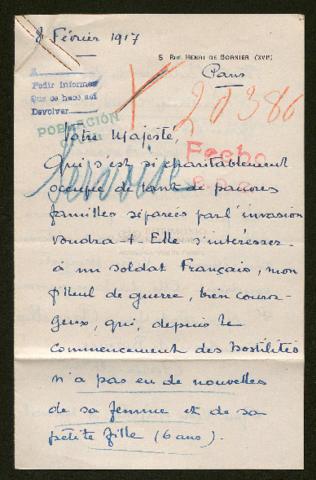 8 Février 1917
5 Rue Henri de Bornier (XVIe)
Paris
A
Pedir informes
Que se hace así
Devolver
20386
POBLACIÓN
CIVIL
Votre Majesté,
Fecho
Qui s'est si charitablement
Servoise
occupée de tant de pauvres
familles séparées par l'invasion
voudra-t-Elle s'intéresser
à un soldat Français, mon
filleul de guerre, bien coura-
geux, qui, depuis le
commencement des hostilités
n'a pas eu de nouvelles
de sa femme et de sa
petite fille (6 ans).